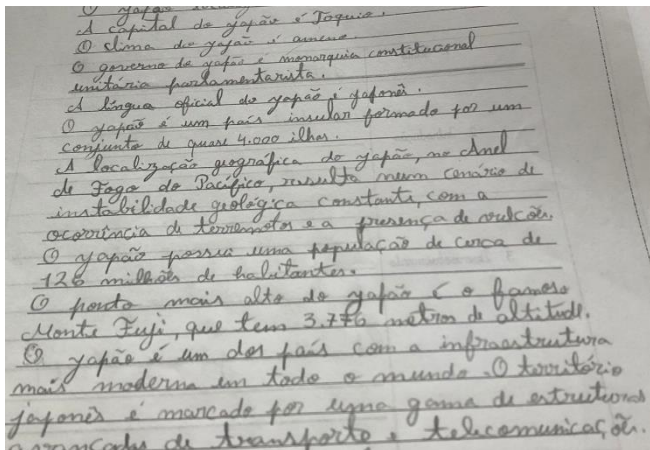 O yapão
A capital do yapão é Toquio.
O clima do yapão é ameno.
O governo do yapão é monarquia constitucional
unitária parlamentarista.
A língua oficial do yapão é yaponês.
O yapão é um país insular formado por um
conjunto de quase 4.000 ilhas.
A localização geográfica do yapão, no Anel
de Fogo do Pacífico, resulta num cenário de
instabilidade geológica constante, com a
ocorrência de terremotos e a presença de vulcões.
O yapão possui uma população de cerca de
126 milhões de habitantes.
O ponto mais alto do yapão é o famoso
Monte Fuji, que tem 3.776 metros de altitude.
O yapão é um dos país com a infraestrutura
mais moderna em todo o mundo. O território
japonês é marcado por uma gama de estruturas
avançadas de transporte e telecomunicações.